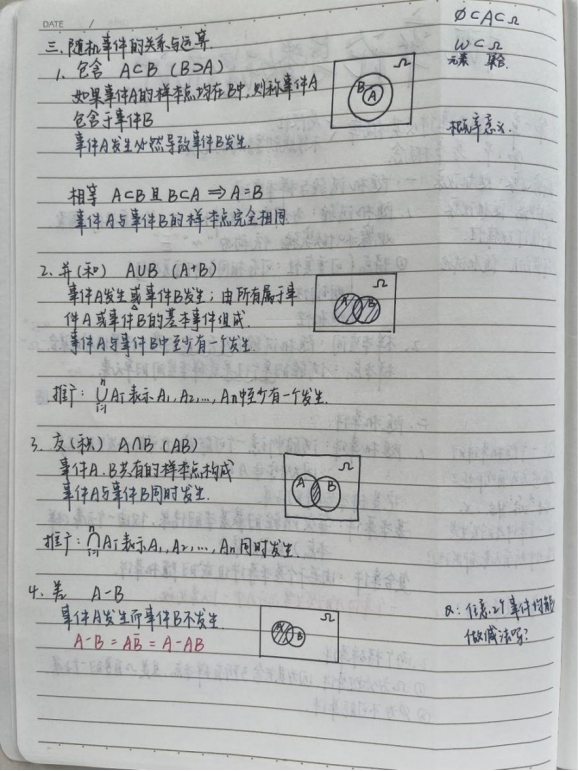 DATE /
∅⊂A⊂Ω
三. 随机事件的关系与运算.
ω⊂Ω
元素 集合
1. 包含 A⊂B (B⊃A)
Ω
B A
如果事件A的样本点均在B中, 则称事件A
包含于事件B
概率意义.
事件A发生必然导致事件B发生.
相等 A⊂B 且 B⊂A ⇒ A=B
事件A与事件B的样本点完全相同
2. 并(和) A∪B (A+B)
Ω
A B
事件A发生或事件B发生; 由所有属于事
件A或事件B的基本事件组成.
事件A与事件B中至少有一个发生
推广: ⋃ⁿᵢ₌₁ Aᵢ 表示 A₁, A₂, ..., Aₙ中至少有一个发生.
3. 交(积) A∩B (AB)
Ω
A B
事件A.B共有的样本点构成
事件A与事件B同时发生.
推广: ⋂ⁿᵢ₌₁ Aᵢ 表示A₁, A₂, ..., Aₙ同时发生.
4. 差 A-B
Ω
A B
事件A发生而事件B不发生
A-B = AB̅ = A-AB
Q: 任意2个事件均能
做减法吗?